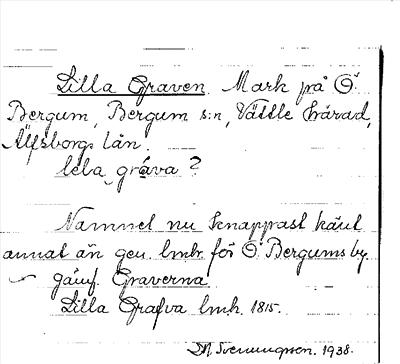 Lilla Graven. Mark på Ö.
Bergum, Bergum s:n, Vättle härad,
Älfsborgs län.
lela gráva?
Namnet nu knappast känt
annat än gen. lmhr för Ö. Bergums by.
jämf. Graverna
Lilla Grafva lmh. 1815.
Svenungson. 1938.